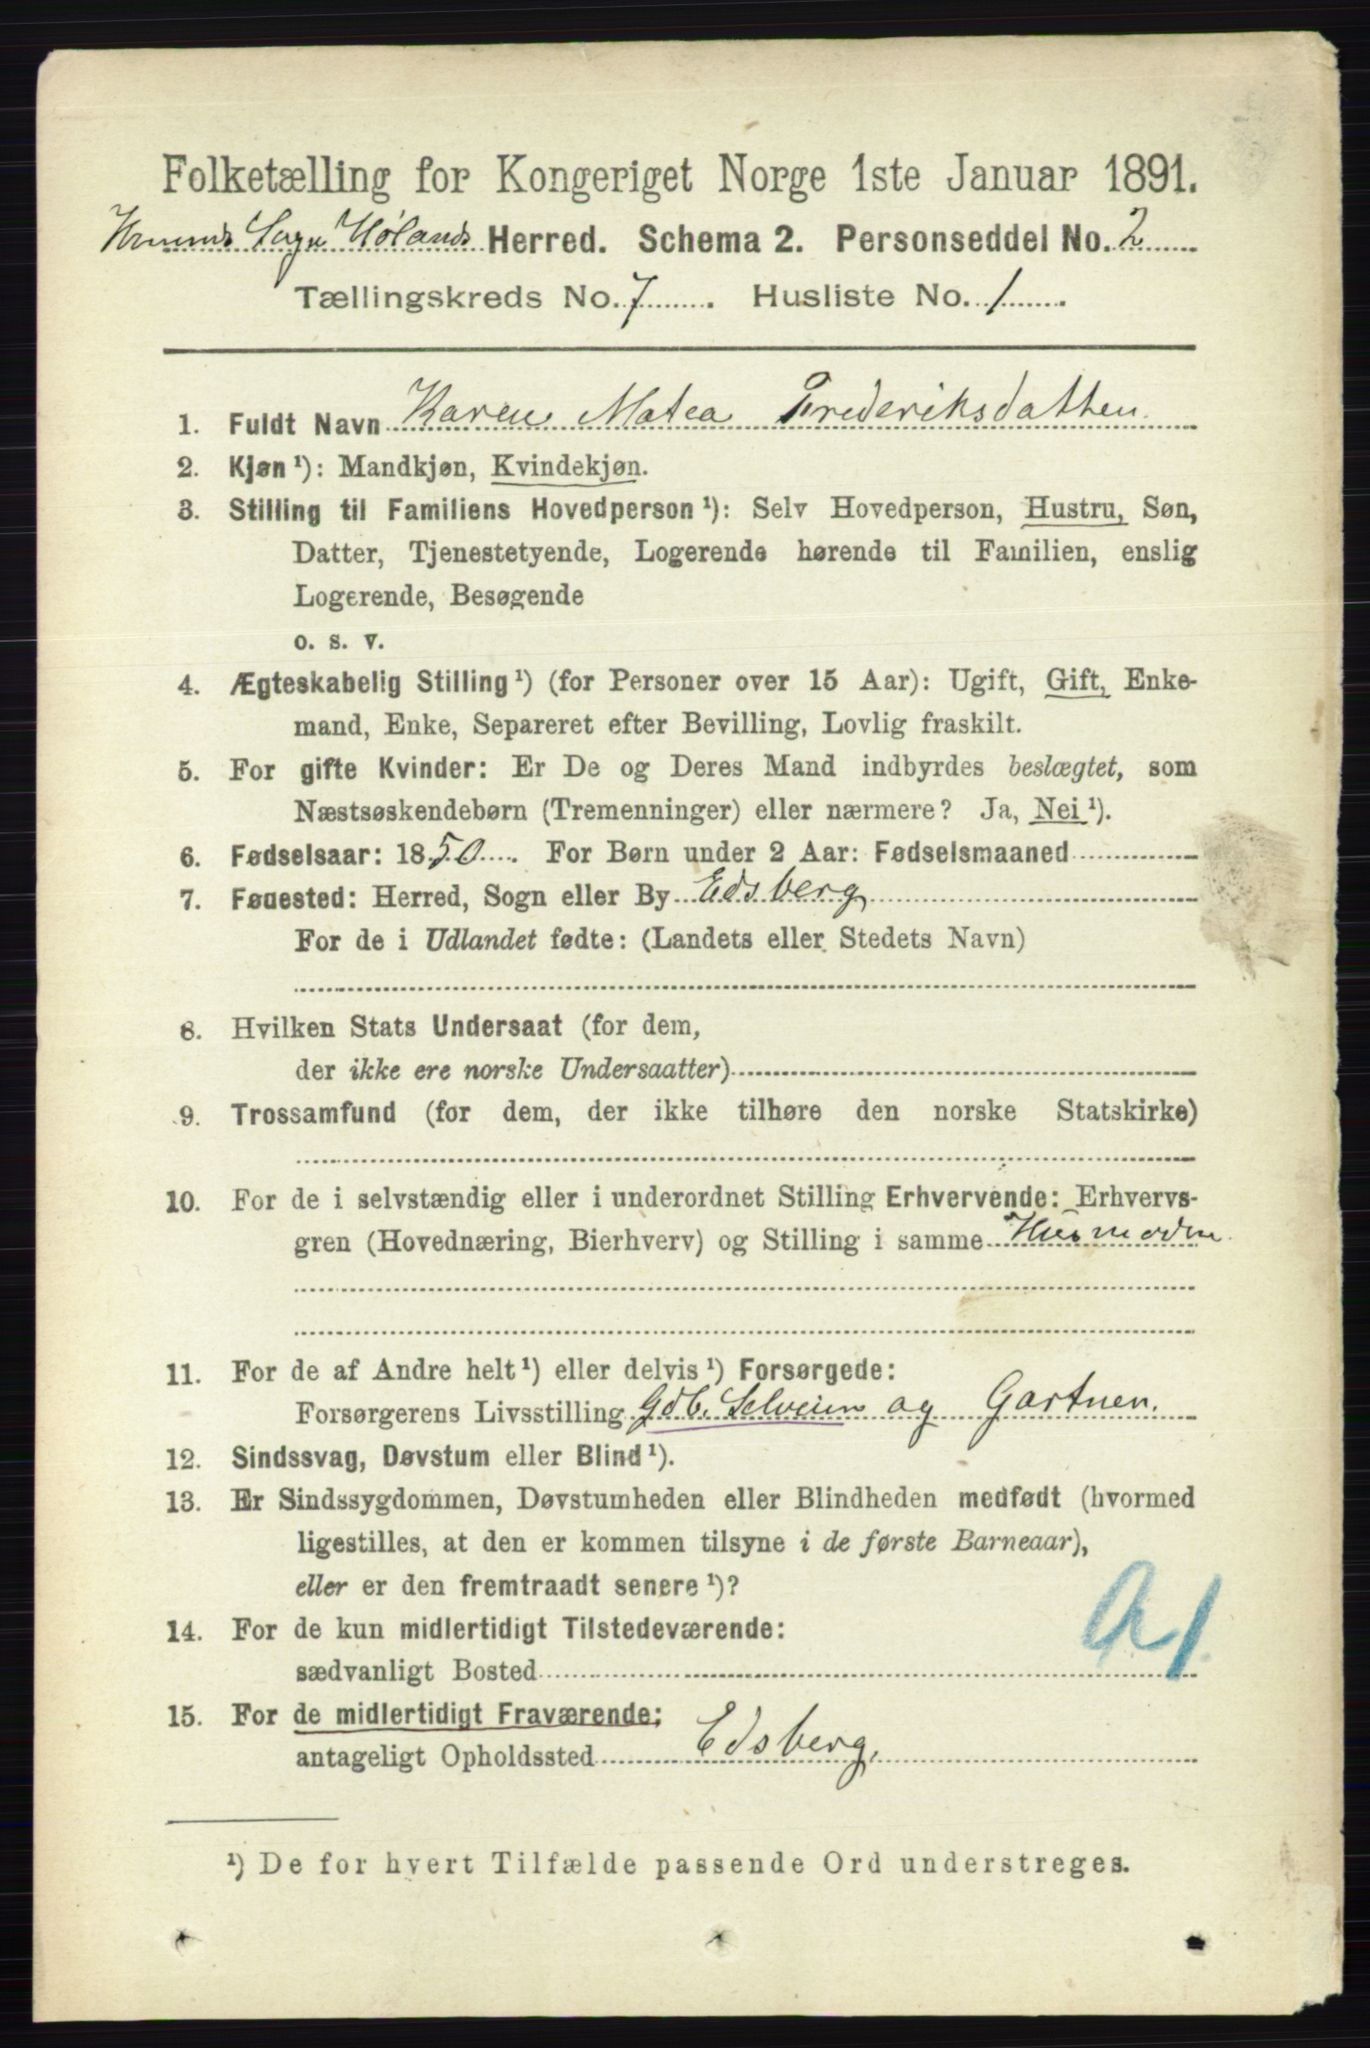 Folketælling for Kongeriget Norge 1ste Januar 1891.
Sogn Hølands Herred. Schema 2. Personseddel No. 2
Tællingskreds No. 7. Husliste No. 1.
1. Fuldt Navn Karen Matea Frederiksdatter
2. Kjøn ¹): Mandkjøn, Kvindekjøn.
3. Stilling til Familiens Hovedperson ¹): Selv Hovedperson, Hustru, Søn,
Datter, Tjenestetyende, Logerende hørende til Familien, enslig
Logerende, Besøgende
o. s. v.
4. Ægteskabelig Stilling ¹) (for Personer over 15 Aar): Ugift, Gift, Enke-
mand, Enke, Separeret efter Bevilling, Lovlig fraskilt.
5. For gifte Kvinder: Er De og Deres Mand indbyrdes beslægtet, som
Næstsøskendebørn (Tremenninger) eller nærmere? Ja, Nei ¹).
6. Fødselsaar: 1850. For Børn under 2 Aar: Fødselsmaaned
7. Føuested: Herred, Sogn eller By Edsberg
For de i Udlandet fødte: (Landets eller Stedets Navn)
8. Hvilken Stats Undersaat (for dem,
der ikke ere norske Undersaatter)
9. Trossamfund (for dem, der ikke tilhøre den norske Statskirke)
10. For de i selvstændig eller i underordnet Stilling Erhvervende: Erhvervs-
gren (Hovednæring, Bierhverv) og Stilling i samme Husmoder
11. For de af Andre helt ¹) eller delvis ¹) Forsørgede:
Forsørgerens Livsstilling Gdb. Selveier og Gartner.
12. Sindssvag, Døvstum eller Blind ¹).
13. Er Sindssygdommen, Døvstumheden eller Blindheden medfødt (hvormed
ligestilles, at den er kommen tilsyne i de første Barneaar),
eller er den fremtraadt senere ¹)?
14. For de kun midlertidigt Tilstedeværende:
sædvanligt Bosted
A1
15. For de midlertidigt Fraværende:
antageligt Opholdssted Edsberg.
¹) De for hvert Tilfælde passende Ord understreges.